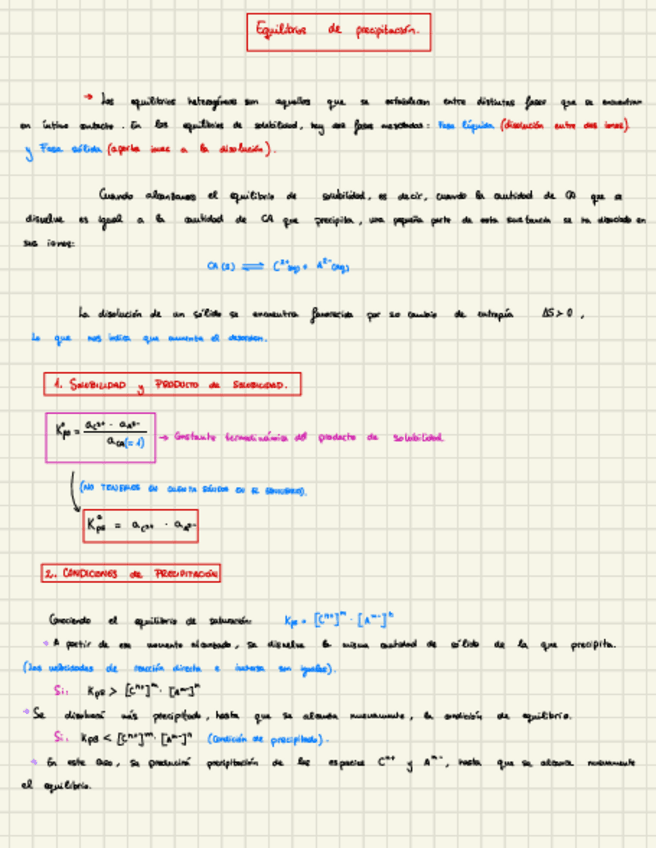 Equilibrios de precipitación.
→ Los equilibrios heterogéneos son aquellos que se establecen entre distintas fases que se encuentran
en íntimo contacto. En los equilibrios de solubilidad, hay dos fases mezcladas: Fase líquida (disolución entre dos iones)
y Fase sólida (aporta iones a la disolución).
Cuando alcanzamos el equilibrio de solubilidad, es decir, cuando la cantidad de CA que se
disuelve es igual a la cantidad de CA que precipita, una pequeña parte de esta sustancia se ha disociado en
sus iones:
CA (s) ⇌ C²⁺(aq) + A²⁻(aq)
La disolución de un sólido se encuentra favorecida por su cambio de entropía ΔS > 0,
lo que nos indica que aumenta el desorden.
1. SOLUBILIDAD y PRODUCTO de SOLUBILIDAD.
K°ps = a C²⁺ · a A²⁻ / a CA (= 1) → Constante termodinámica del producto de solubilidad
(NO TENEMOS EN CUENTA SÓLIDOS EN EL EQUILIBRIO).
K°ps = a C²⁺ · a A²⁻
2. CONDICIONES de PRECIPITACIÓN
Conociendo el equilibrio de saturación Kps = [Cⁿ⁺]ᵐ · [Aᵐ⁻]ⁿ
A partir de ese momento alcanzado, se disuelve la misma cantidad de sólido de la que precipita.
(Las velocidades de reacción directa e inversa son iguales).
Si: Kps > [Cⁿ⁺]ᵐ · [Aᵐ⁻]ⁿ
Se disolverá más precipitado, hasta que se alcanza nuevamente, la condición de equilibrio.
Si: Kps < [Cⁿ⁺]ᵐ · [Aᵐ⁻]ⁿ (Condición de precipitado).
En este caso, se producirá precipitación de las especies Cⁿ⁺ y Aᵐ⁻, hasta que se alcanza nuevamente
el equilibrio.